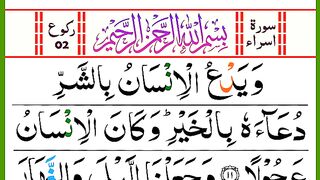 سورة اسراء
بِسْمِ اللّٰهِ الرَّحْمٰنِ الرَّحِيْمِ
رکوع 02
وَيَدْعُ الْاِنْسَانُ بِالشَّرِّ
دُعَآءَهٗ بِالْخَيْرِ ؕ وَكَانَ الْاِنْسَانُ
عَجُوْلًا ۝۱۱ وَجَعَلْنَا الَّيْلَ وَالنَّهَارَ